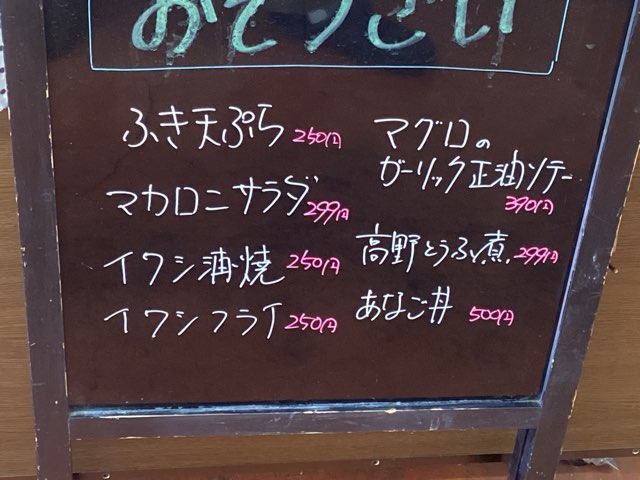 おそうざい
ふき天ぷら 250円
マカロニサラダ 299円
イワシ蒲焼 250円
イワシフライ 250円
マグロの
ガーリック正油ソテー
390円
高野とうふ煮 299円
あなご丼 500円